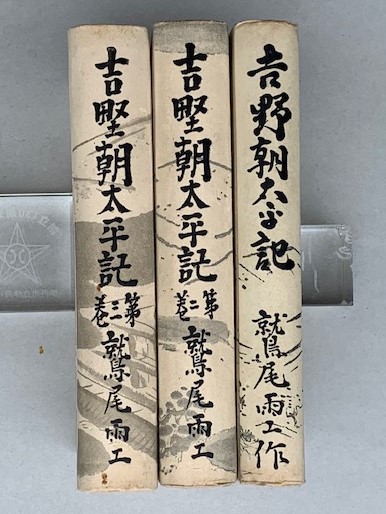 吉野朝太平記
鷲尾雨工作
吉墅朝太平記
第二巻
鷲尾雨工
吉墅朝太平記
第三巻
鷲尾雨工